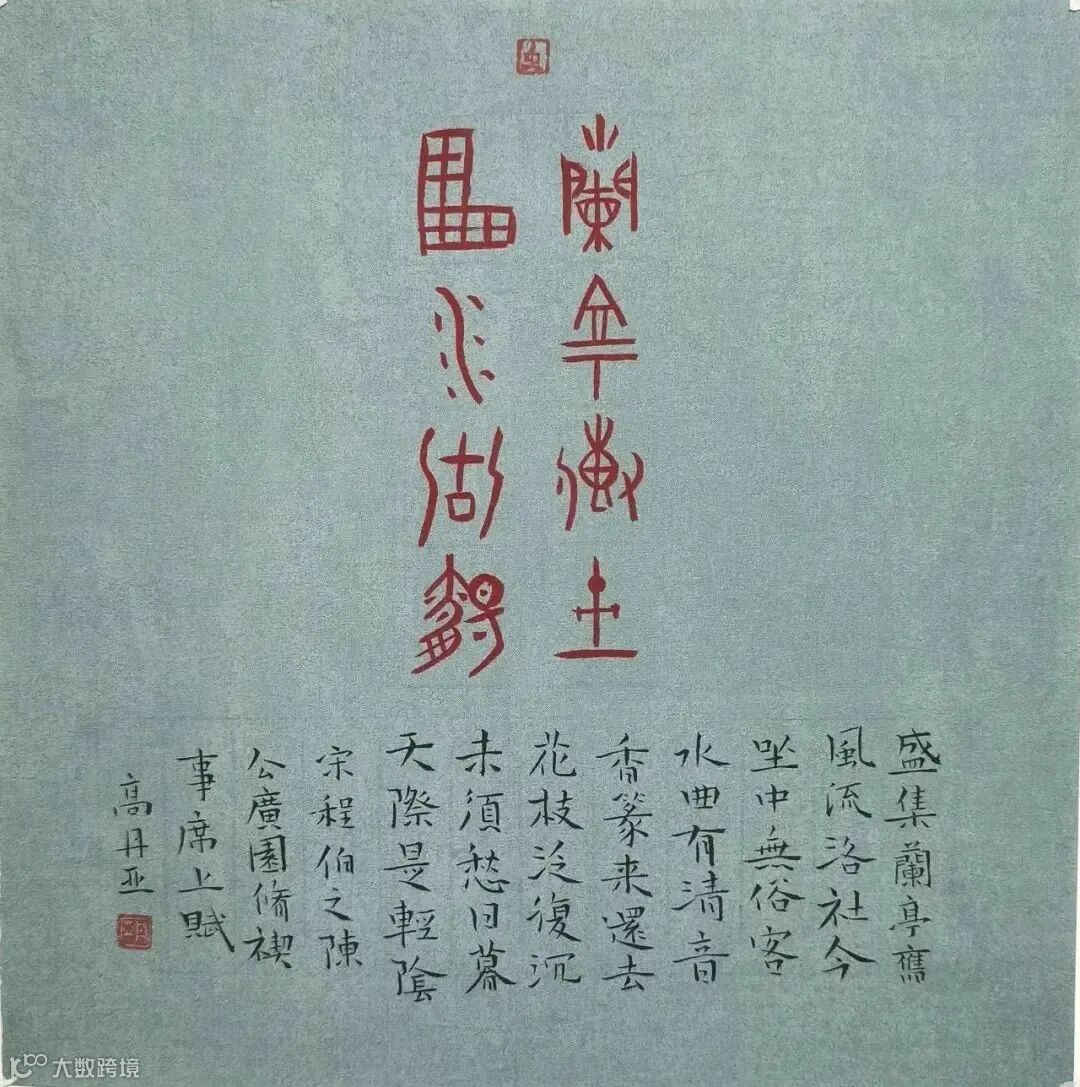 蘭亭土
曲水湖
盛集蘭亭舊
風流洛社今
坐中無俗客
水曲有清音
香篆来還去
花枝泛復沉
未須愁日暮
天際是輕陰
宋程伯之陳
公廣園脩禊
事席上賦
高丹亚
大数跨境